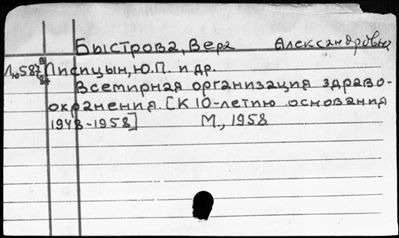 Быстрова, Вера Александровна
Лисицын, Ю.П. и др.
Всемирная организация здраво-
охранения. [К 10-летию основания
1948-1958] М., 1958